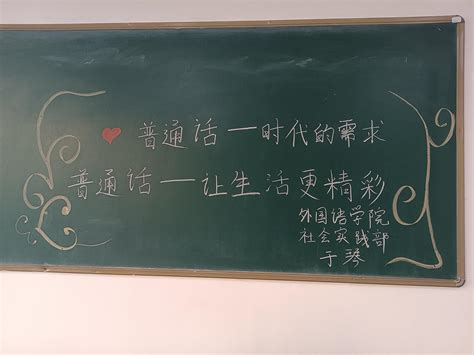 普通话一时代的需求
普通话一让生活更精彩
外国语学院
社会实践部
于琴